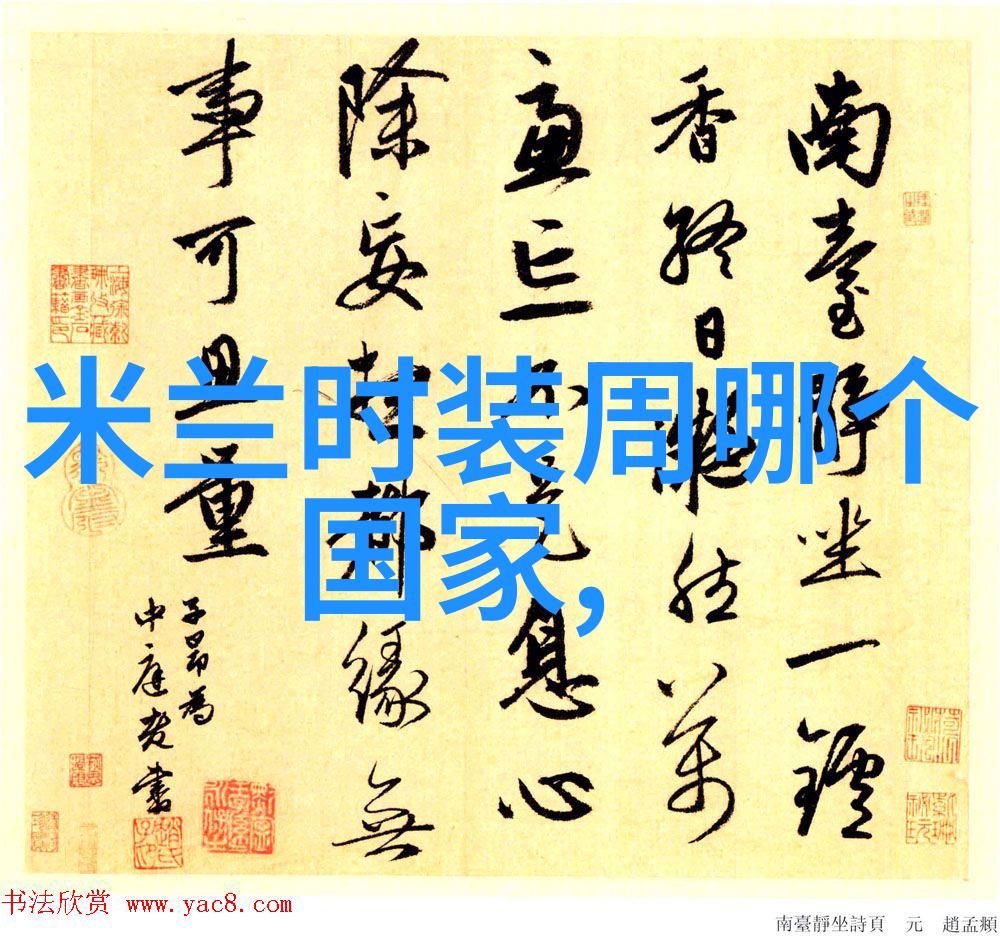 南臺靜坐一鑪
香終日凝然萬
慮亡不是息心
除妄想都緣無
事可思量
子昂為
中庭老書
米兰时装周哪个
国家,
书法欣赏 www.yac8.com
南臺靜坐詩頁 元 趙孟頫